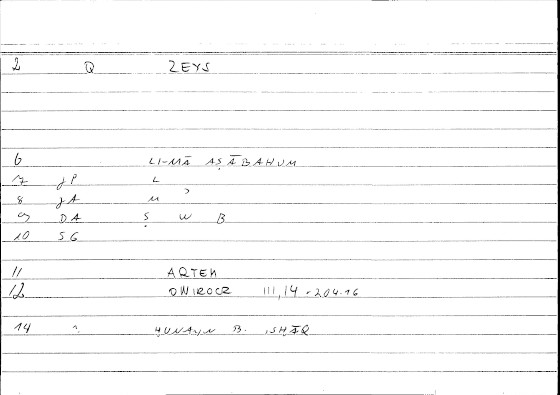 2 Q ZEYS
6 LI-MĀ AṢĀBAHUM
7 JP L
8 JA M ʾ
9 DA Ṣ W B
10 SG
11 ARTEM
12 ONIROCR III,14 - 204.16
14 ḤUNAYN B. ISḤĀQ